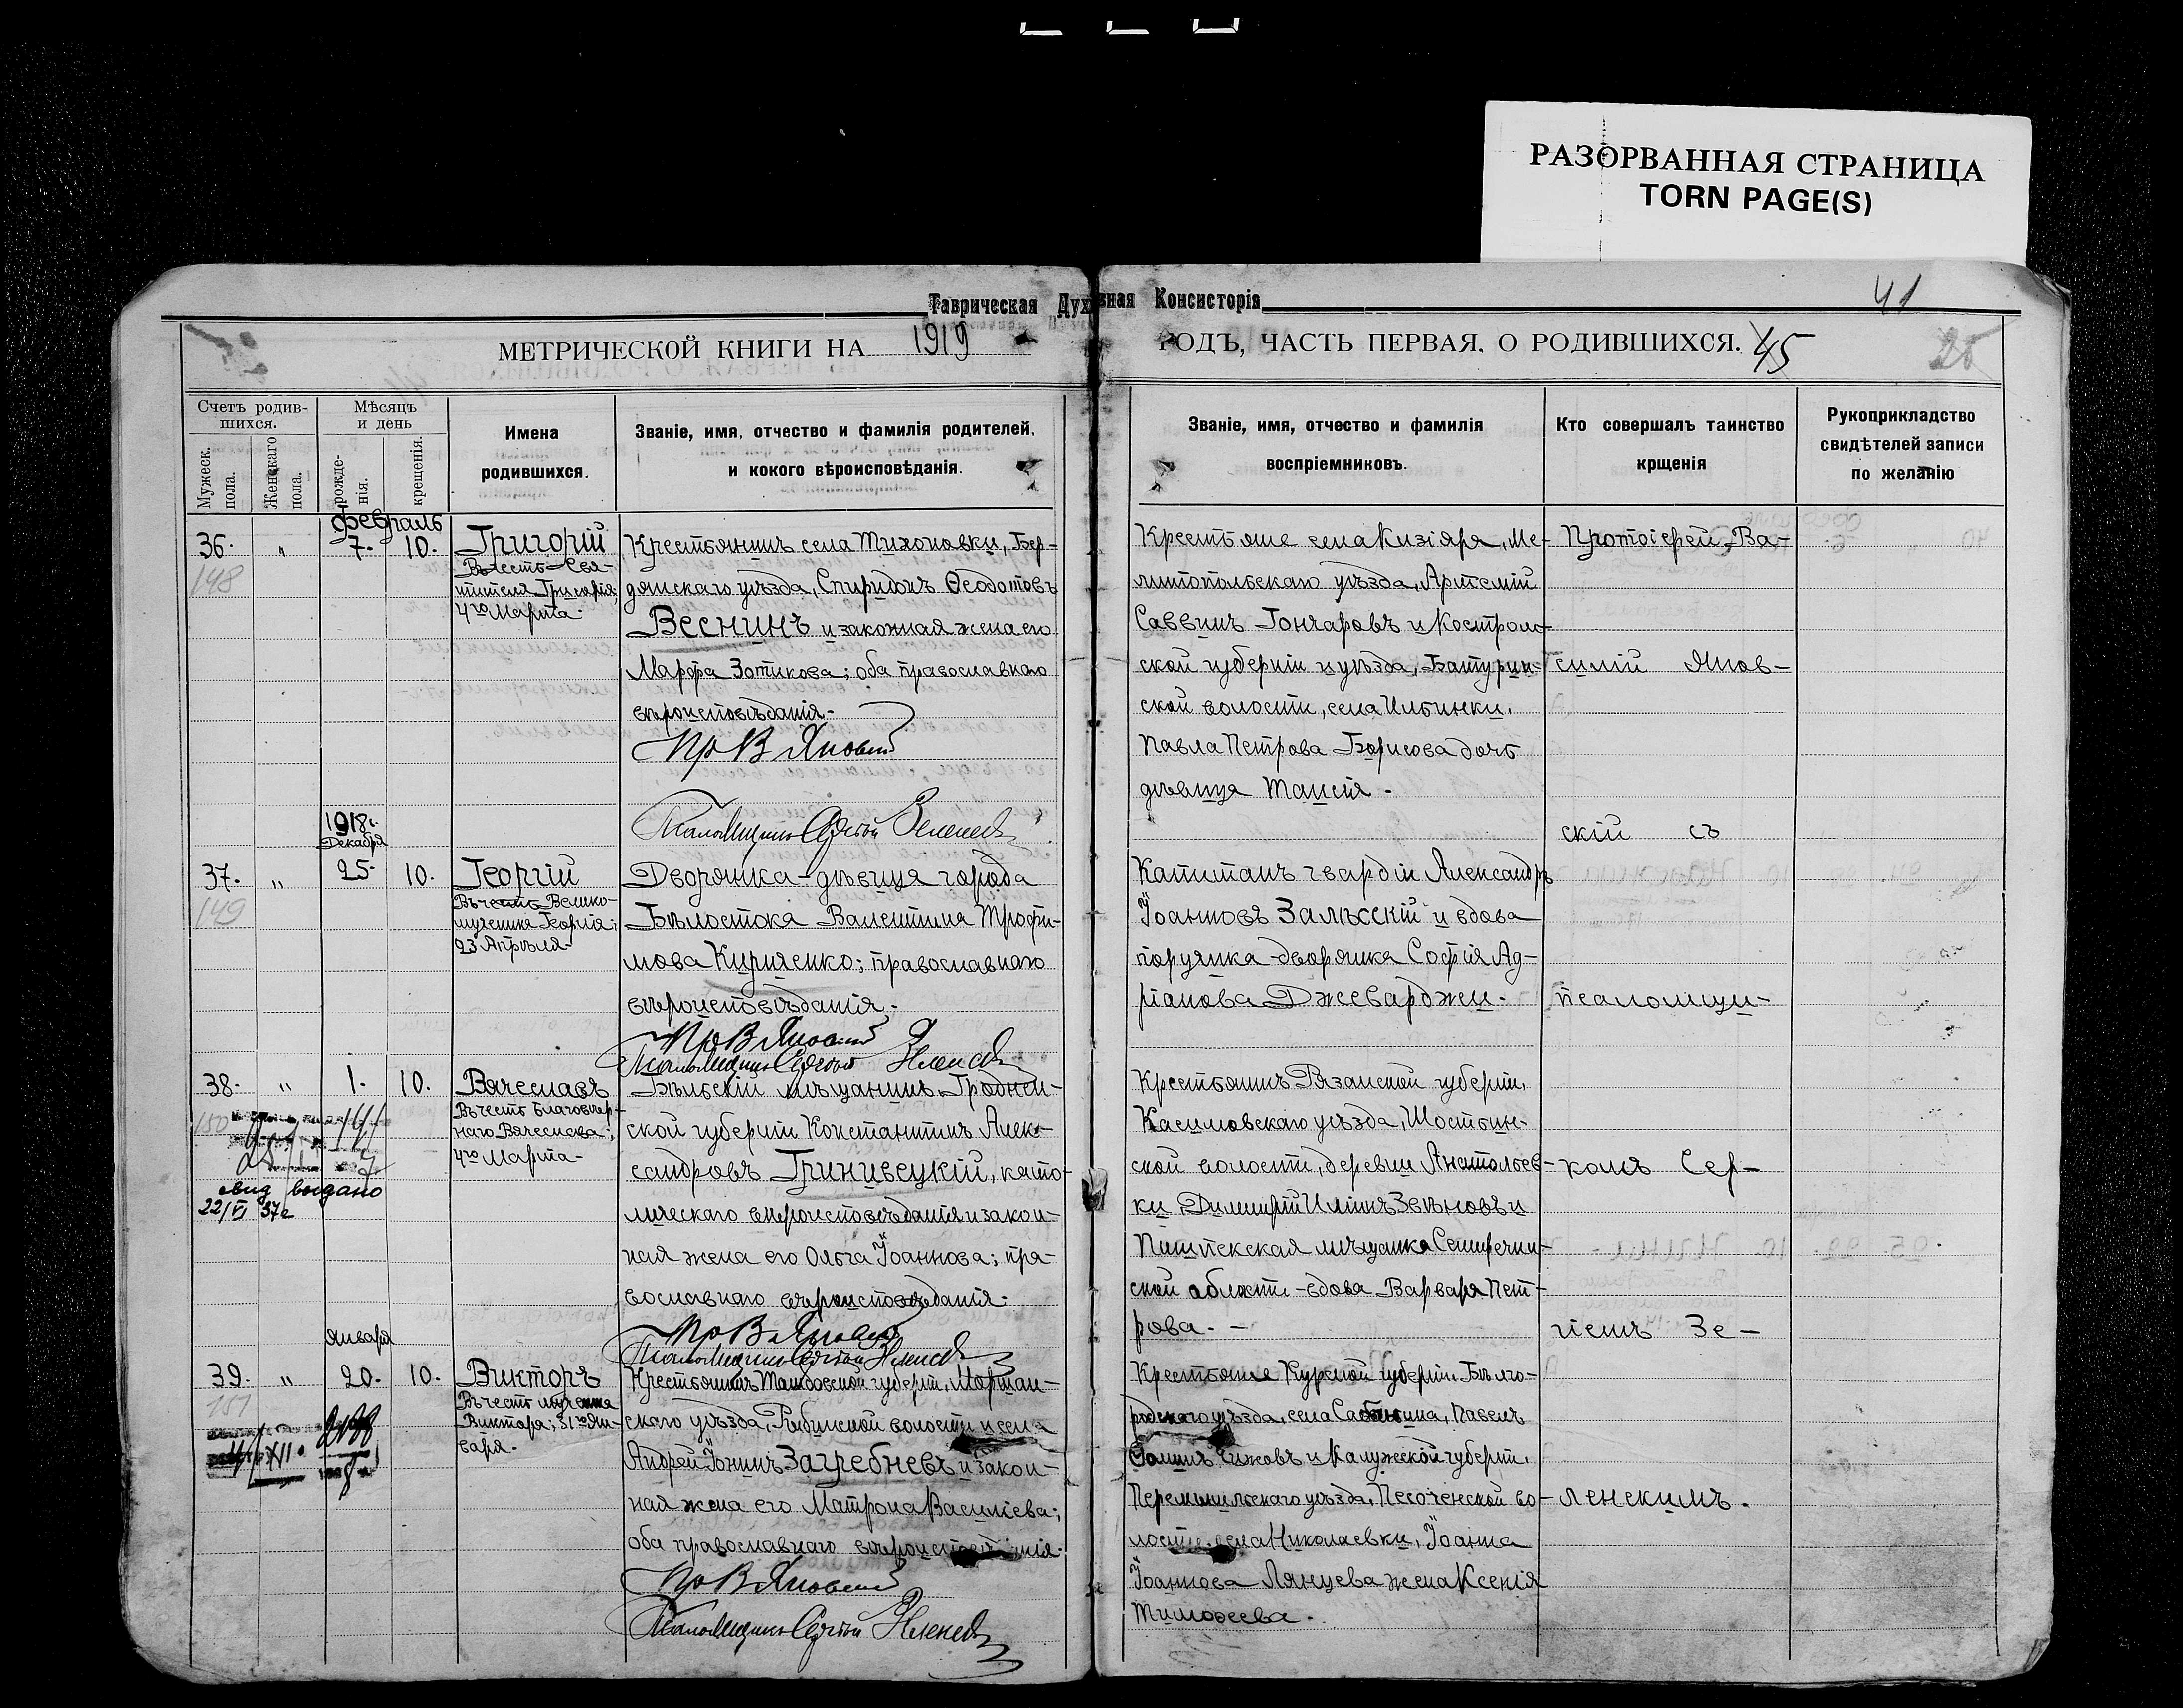 РАЗОРВАННАЯ СТРАНИЦА
TORN PAGE(S)
Таврическая Духовная Консисторія
41
МЕТРИЧЕСКОЙ КНИГИ НА 1919 ГОДЪ, ЧАСТЬ ПЕРВАЯ, О РОДИВШИХСЯ. 45
25
Счетъ родив-
шихся.
Мужеск. пола.
Женскаго пола.
Мѣсяцъ
и день
рожде-
нія.
крещенія.
Имена
родившихся.
Званіе, имя, отчество и фамилія родителей,
и кокого вѣроисповѣданія.
Званіе, имя, отчество и фамилія
воспріемниковъ.
Кто совершалъ таинство
крщенія
Рукоприкладство
свидѣтелей записи
по желанію
февраль
36. " 7. 10.
148
Григорій
Въ честь Свя-
тителя Григорія;
4го Марта.
Крестьянинъ села Тихоновки, Бер-
дянскаго уѣзда, Спиридонъ Ѳеодотовъ
Веснинъ и законная жена его
Марфа Зотикова; оба православнаго
вѣроисповѣданія.
Пр В Яновскій
Псаломщикъ Сергій Зеленскій
Крестьяне села Кизіяра, Ме-
литопольскаго уѣзда, Артемій
Саввинъ Гончаровъ и Костром-
ской губерніи и уѣзда, Батурин-
ской волости, села Ильинки,
Павла Петрова Борисова дочь
дѣвица Таисія.
Протоіерей Ва-
силій Янов-
скій съ
псаломщи-
комъ Сер-
гіемъ Зе-
ленскимъ.
1918г.
Декабря
37. " 25. 10.
149
Георгій
Въ честь Велико-
мученика Георгія;
23 Апрѣля.
Дворянка-дѣвица города
Бѣлостока Валентина Трофи-
мова Кириченко; православнаго
вѣроисповѣданія.
Пр В Яновскій
Псаломщикъ Сергій Зеленскій
Капитанъ гвардіи Александръ
Іоанновъ Залѣсскій и вдова
поручика дворянка Софія Ад-
ріанова Джеварджи.
38. " 1. 10.
150
свид выдано
22/VI 37г
Вячеславъ
Въ честь Благовѣр-
наго Вячеслава;
4го Марта.
Бѣльскій мѣщанинъ Гроднен-
ской губерніи Константинъ Алек-
сандровъ Гринивецкій, като-
лическаго вѣроисповѣданія и закон-
ная жена его Ольга Іоаннова; пра-
вославнаго вѣроисповѣданія.
Пр В Яновскій
Псаломщикъ Сергій Зеленскій
Крестьянинъ Рязанской губерніи,
Касимовскаго уѣзда, Шостьин-
ской волости, деревни Анатольев-
ки, Димитрій Иліинъ Зѣновъ и
Пишпекская мѣщанка Семирѣчен-
ской области-вдова Варвара Пет-
рова.
Января
39. " 20. 10.
151
Викторъ
Въ честь мученика
Виктора; 31го Ян-
варя.
Крестьянинъ Тамбовской губерніи, Моршан-
скаго уѣзда, Рыбинской волости и села
Андрей Іонинъ Загребневъ и закон-
ная жена его Матрона Василіева;
оба православнаго
Пр В Яновскій
Псаломщикъ Сергій Зеленскій
Крестьяне Курской губерніи, Бѣлго-
родскаго уѣзда, села Павелъ
Ѳоминъ Чижовъ и Калужской губерніи,
Перемышльскаго уѣзда, Песоченской во-
лости, села Николаевки, Іоанна
Іоаннова Лянцева жена Ксенія
Тимоѳеева.